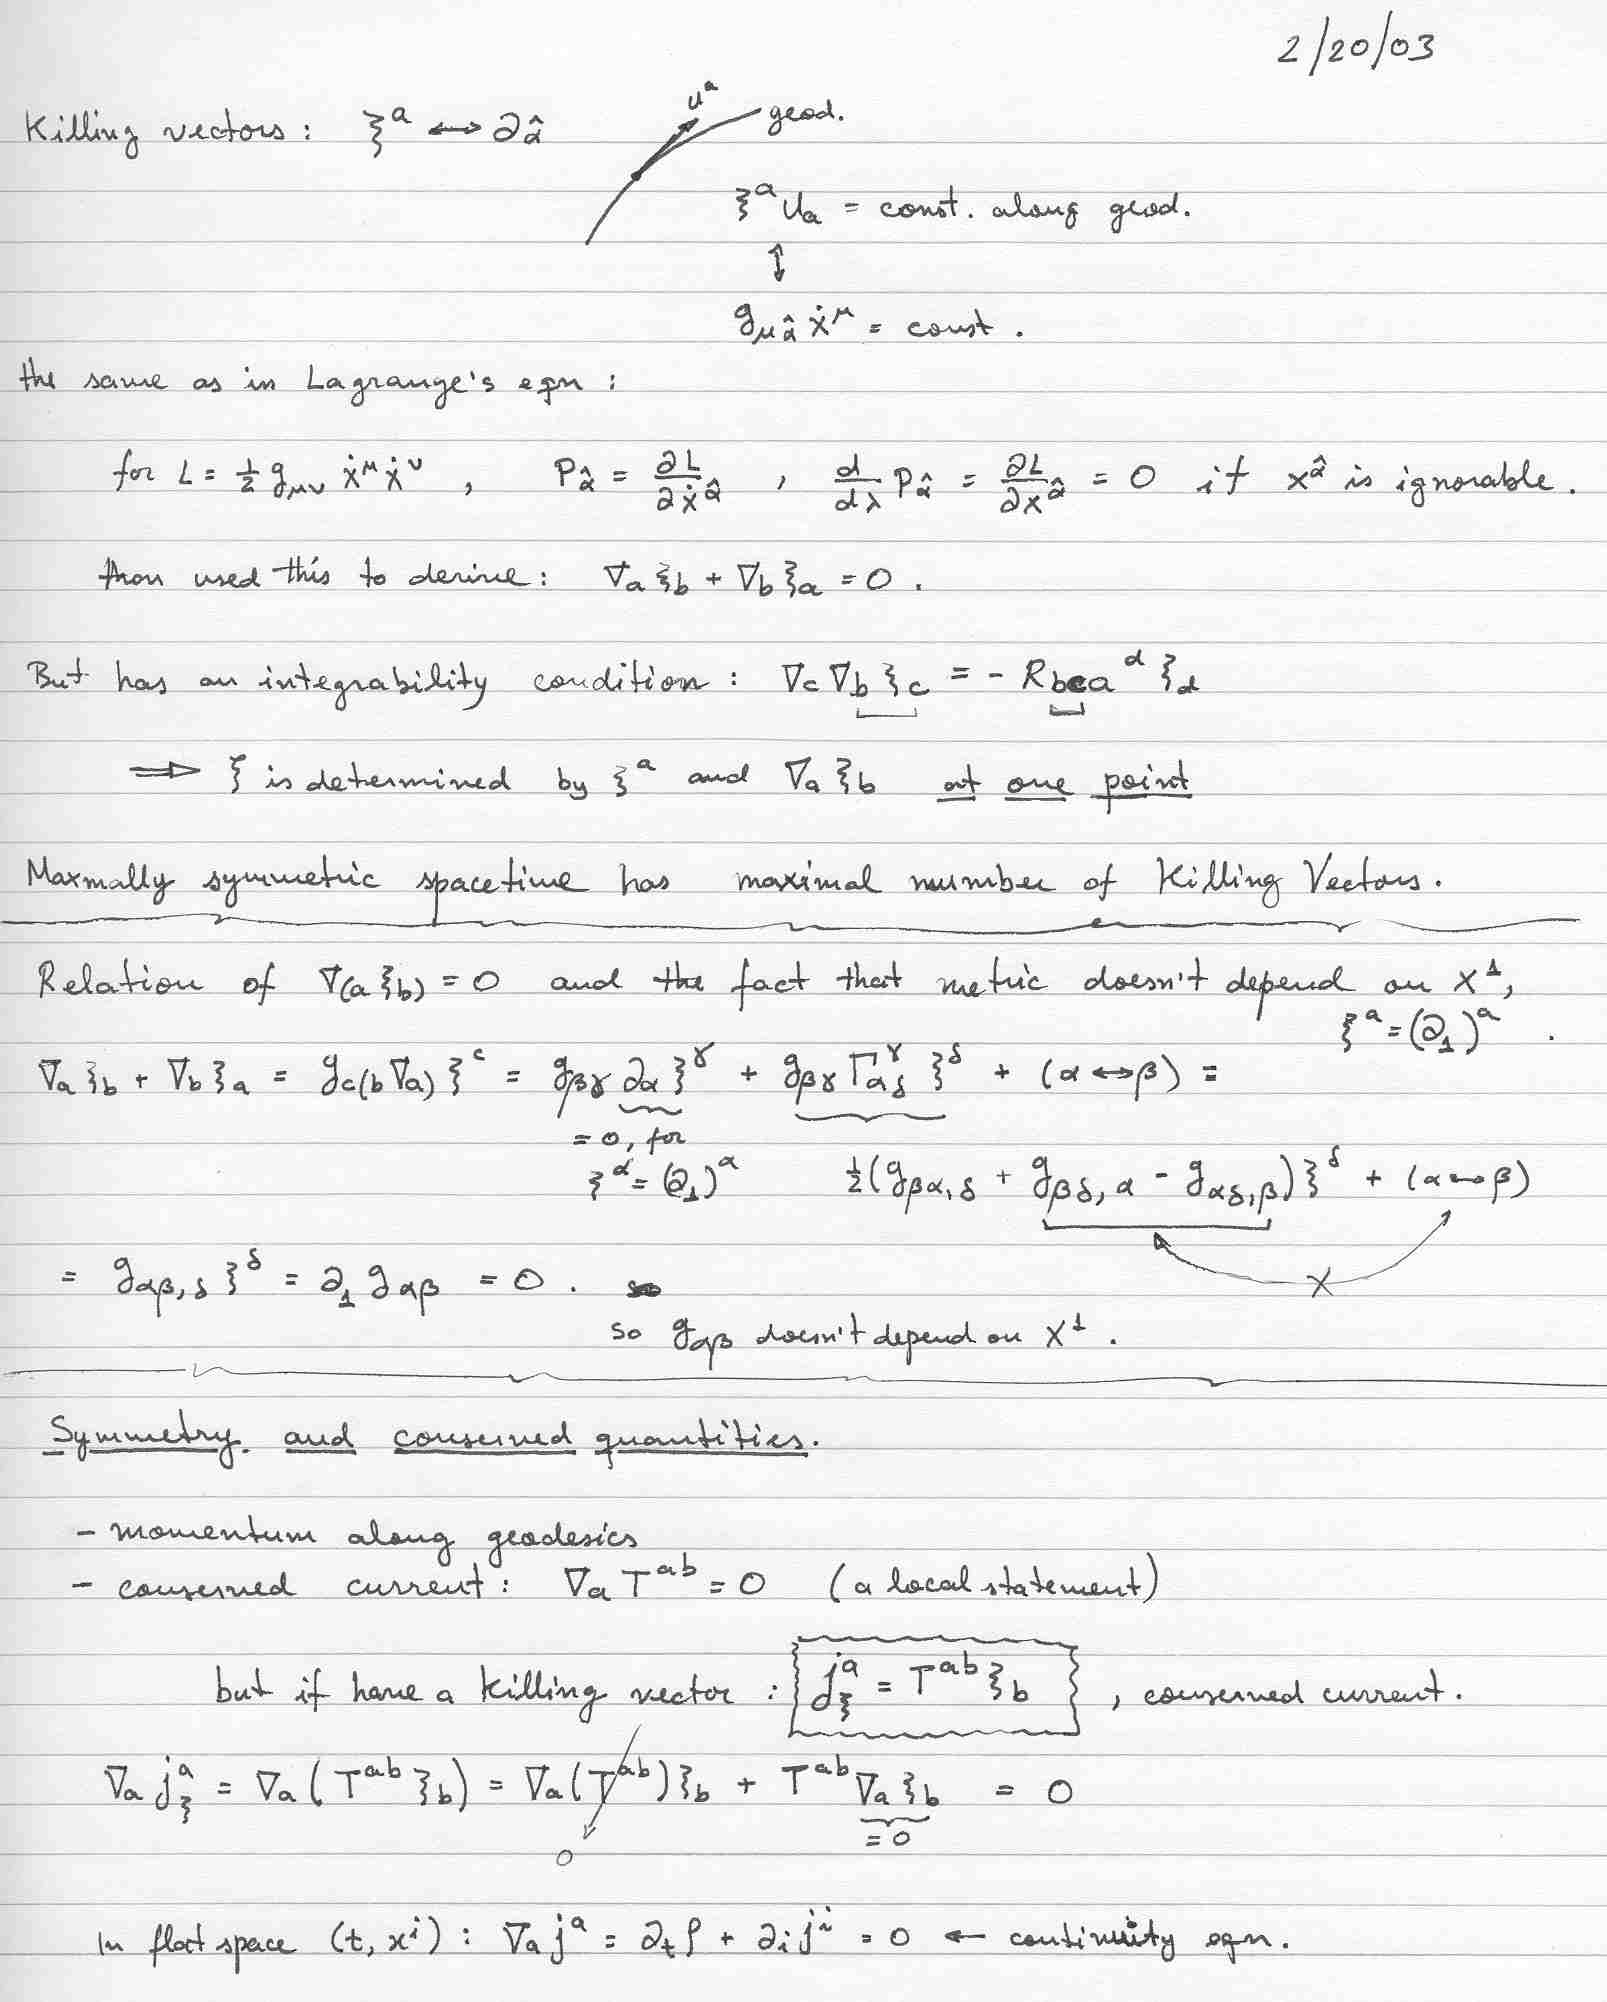 2/20/03
Killing vectors: ξ^a ↔ ∂_α̂
u^a
geod.
ξ^a u_a = const. along geod.
↕
g_μα̂ ẋ^μ = const.
the same as in Lagrange's eqn:
for L = ½ g_μν ẋ^μ ẋ^ν , P_α̂ = ∂L/∂ẋ^α̂ , d/dλ P_α̂ = ∂L/∂x^α̂ = 0 if x^α̂ is ignorable.
then used this to derive: ∇_a ξ_b + ∇_b ξ_a = 0.
But has an integrability condition: ∇_c ∇_b ξ_c = - R_bca^d ξ_d
⇒ ξ is determined by ξ^a and ∇_a ξ_b at one point
Maxmally symmetric spacetime has maximal number of Killing Vectors.
Relation of ∇_(a ξ_b) = 0 and the fact that metric doesn't depend on x^1,
ξ^a = (∂_1)^a .
∇_a ξ_b + ∇_b ξ_a = g_c(b ∇_a) ξ^c = g_βγ ∂_α ξ^γ + g_βγ Γ^γ_αδ ξ^δ + (α↔β) =
= 0, for
ξ^α = (∂_1)^α ½(g_βα,δ + g_βδ,α - g_αδ,β) ξ^δ + (α↔β)
= g_αβ,δ ξ^δ = ∂_1 g_αβ = 0.
so g_αβ doesn't depend on x^1.
Symmetry and conserved quantities.
- momentum along geodesics
- conserved current: ∇_a T^ab = 0 (a local statement)
but if have a killing vector: j^a_ξ = T^ab ξ_b , conserved current.
∇_a j^a_ξ = ∇_a (T^ab ξ_b) = ∇_a (T^ab) ξ_b + T^ab ∇_a ξ_b = 0
= 0
0
In flat space (t, x^i): ∇_a j^a = ∂_t ρ + ∂_i j^i = 0 ← continuity eqn.